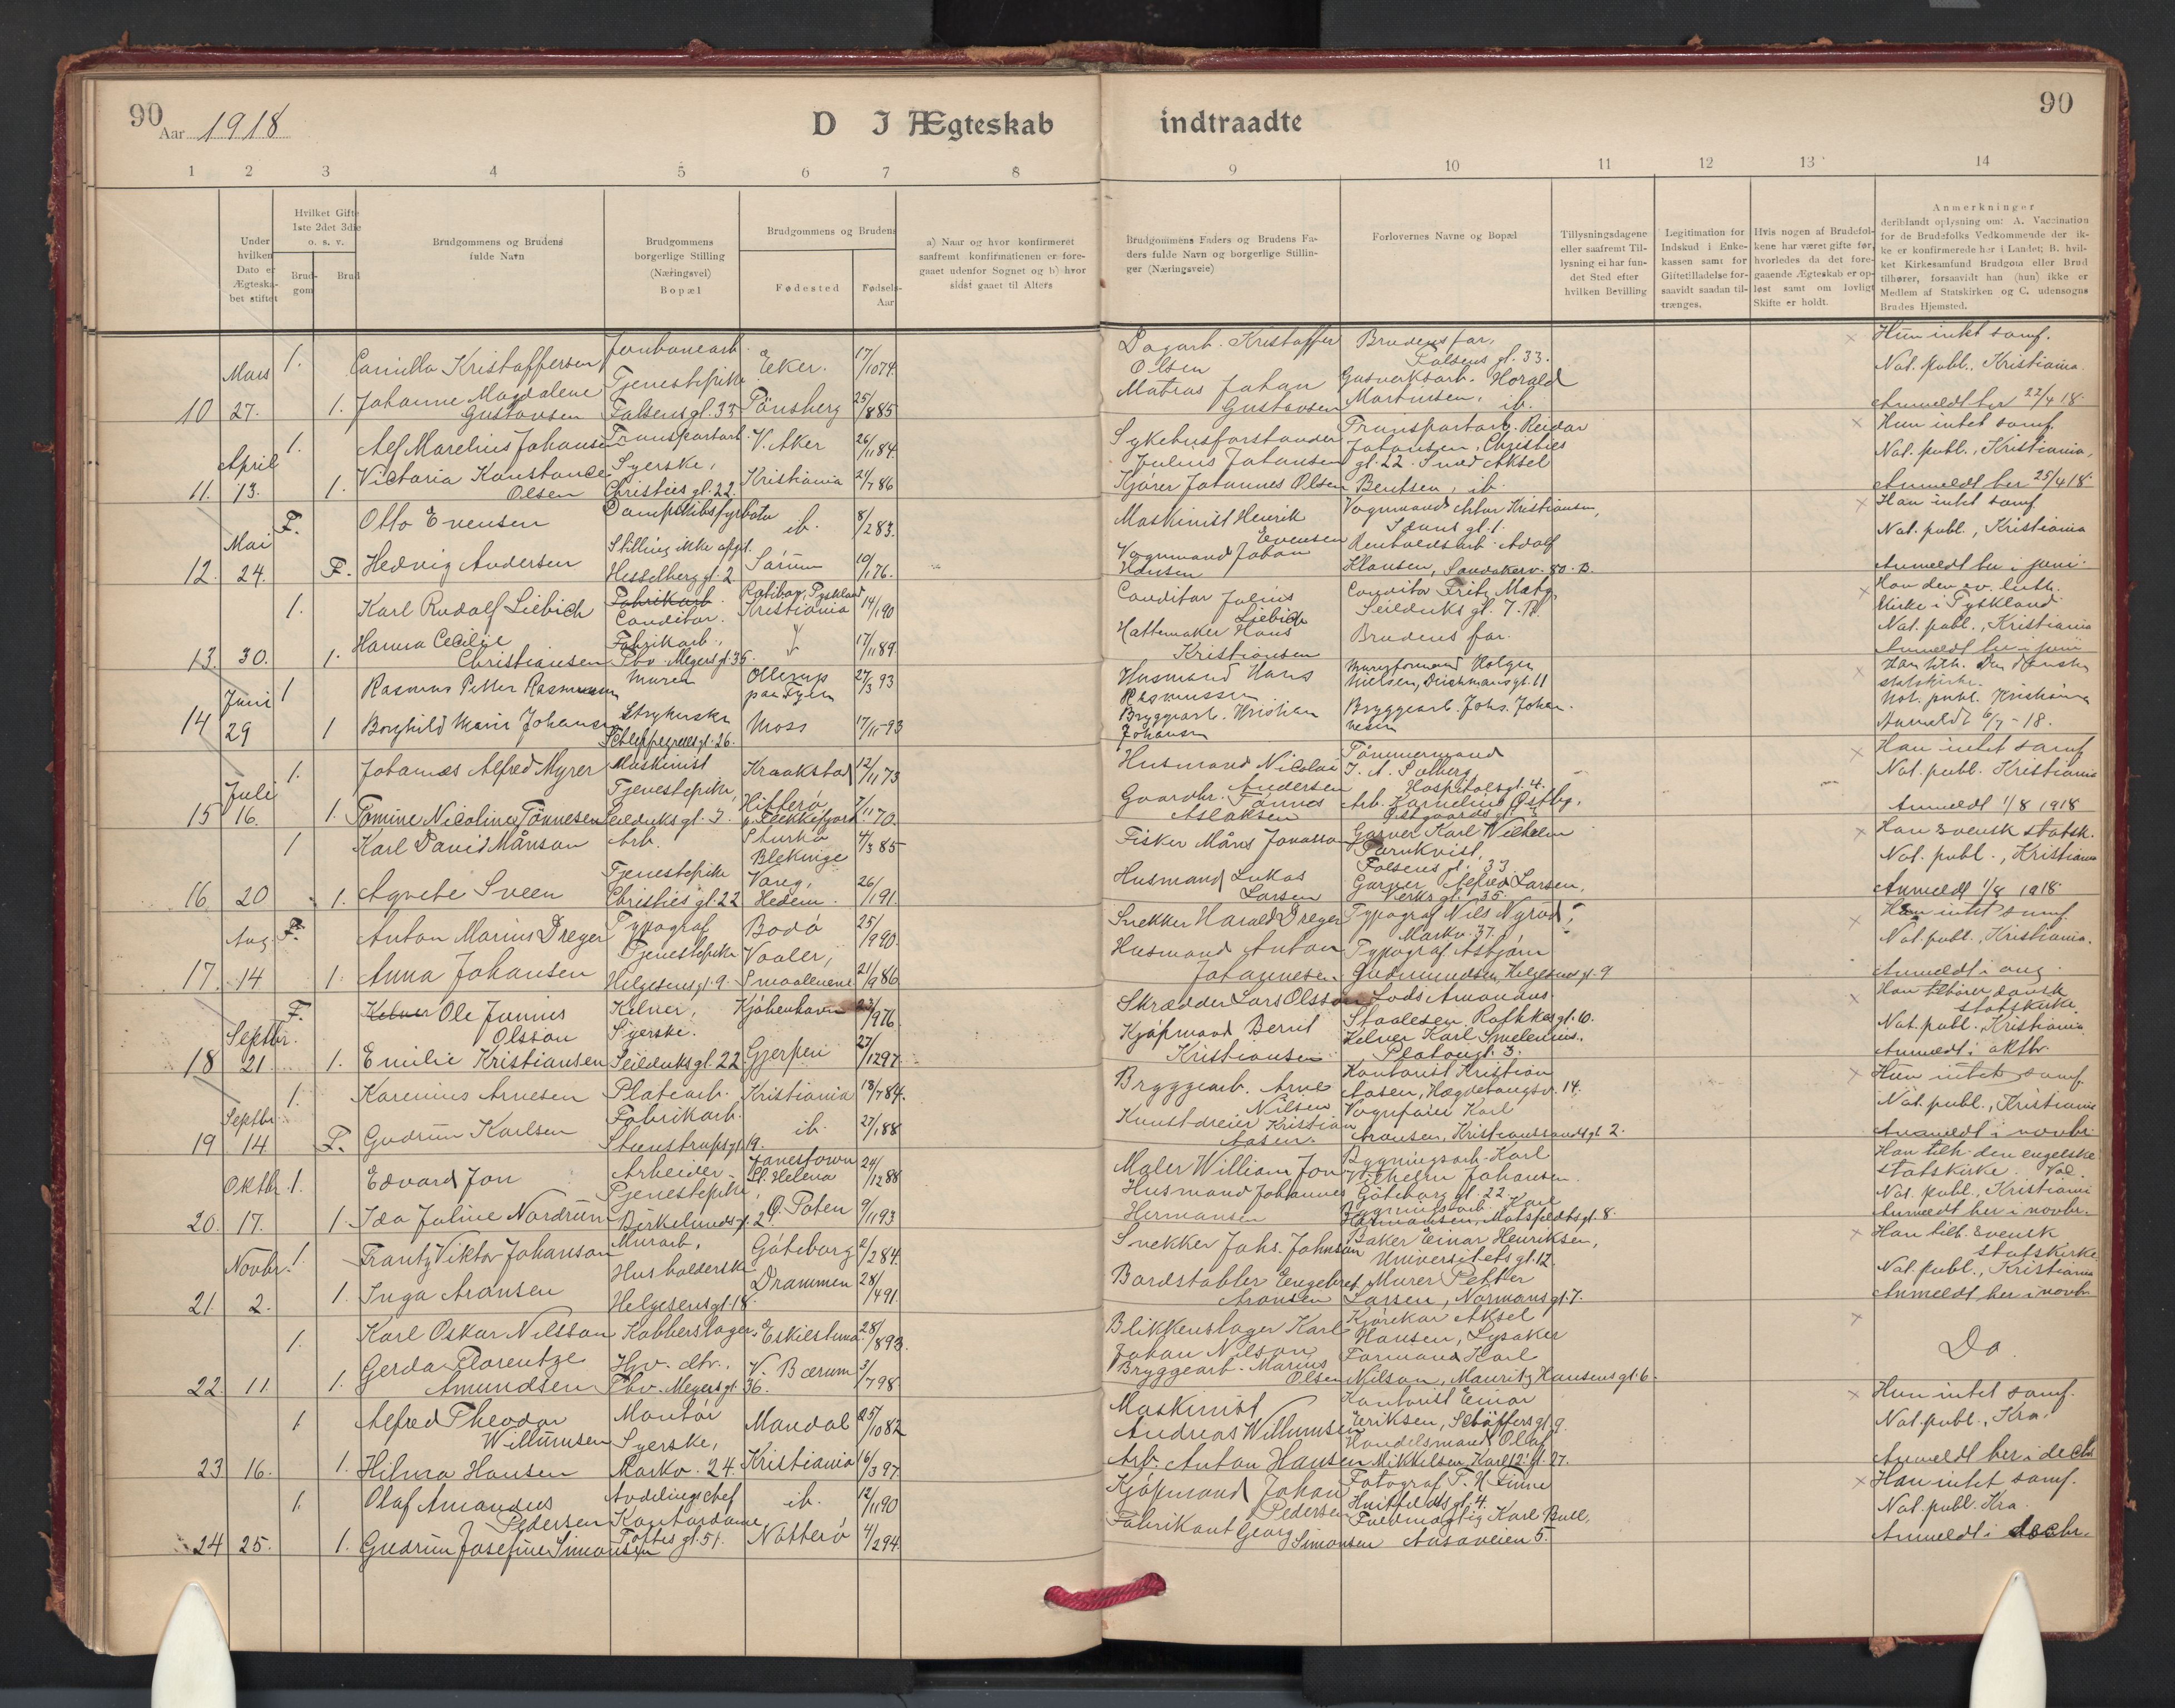 90
Aar 1918
D I Ægteskab indtraadte
90
1 2 3 4 5 6 7 8 9 10 11 12 13 14
Under hvilken Dato er Ægteskabet stiftet
Hvilket Gifte 1ste 2det 3die o. s. v.
Brudgom
Brud
Brudgommens og Brudens fulde Navn
Brudgommens borgerlige Stilling (Næringsvei) Bopæl
Brudgommens og Brudens
Fødested
Fødsels-Aar
a) Naar og hvor konfirmeret saafremt konfirmationen er foregaaet udenfor Sognet og b) hvor sidst gaaet til Alters
Brudgommens Faders og Brudens Faders fulde Navn og borgerlige Stillinger (Næringsveie)
Forlovernes Navne og Bopæl
Tillysningsdagene eller saafremt Tillysning ei har fundet Sted efter hvilken Bevilling
Legitimation for Indskud i Enkekassen samt for Giftetilladelse forsaavidt saadan tiltrænges.
Hvis nogen af Brudefolkene har været gifte før, hvorledes da det foregaaende Ægteskab er opløst samt om lovligt Skifte er holdt.
Anmerkninger
deriblandt oplysning om: A. Vaccination for de Brudefolks Vedkommende der ikke er konfirmerede her i Landet; B. hvilket Kirkesamfund Brudgom eller Brud tilhører, forsaavidt han (hun) ikke er Medlem af Statskirken og C. udensogns Brudes Hjemsted.
10 Mars 27. 1. Camillo Kristoffersen Jernbanearb. Eker. 17/10 74.
1. Johanne Magdalene Gustavsen Tjenestepike Falsens gl. 33 Tönsberg 25/8 85
Dagarb. Kristoffer Olsen
Brudens far, Falsens gl. 33.
Matias Johan Gustavsen
Gasverksarb. Harald Martinsen, ib.
Hun intet samf.
Nat. publ., Kristiania.
Anmeldt her 22/4 18.
11. April 13. 1. Alf Marelius Johansen Transportarb. V. Aker 26/11 84.
1. Victoria Konstance Olsen Syerske, Christies gl. 22. Kristiania 24/7 86
Sykehusforstander Julius Johansen
Transportarb. Reidar Johansen, Christies gl. 22. Smed Aksel Bentsen, ib.
Kjører Johannes Olsen
Hun intet samf.
Nat. publ., Kristiania,
Anmeldt her 25/4 18.
12. Mai 24. F. Otto Evensen Dampskibsfyrböter ib. 8/2 83.
F. Hedvig Andersen Stilling ikke opgt. Hesselberg gl. 2 Sörum 19/1 76.
Maskinist Henrik Evensen
Vognmand Arthur Kristiansen, Iduns gl. 1.
Vognmand Johan Hansen
Renholdsarb. Adolf Klausen, Sandakerv. 80. B.
Han intet samf
Nat. publ., Kristiania
Anmeldt her i juni.
13. 30. 1. Karl Rudolf Liebich Fabrikarb. Conditor. Ratibor, Tyskland Kristiania 14/1 90
1. Hanna Cecilie Christiansen Fabrikarb., Thv. Meyers gl. 36. 17/11 89.
Conditor Julius Liebich
Conditor Fritz Matz, Seilduks gl. 7. IV.
Hattemaker Hans Kristiansen
Brudens far.
Han den ev. luth. kirke i Tyskland.
Nat. publ., Kristiania
Anmeldt her i juni
14 Juni 29 1 Rasmus Petter Rasmussen Murer Ollerup paa Fyen 27/3 93
1 Borghild Marie Johansen Strykerske Schleppegrells gl. 26. Moss 17/11 93
Husmand Hans Rasmussen
Murerformand Holger Nielsen, Deichmansgt. 11
Bryggearb. Kristian Johansen
Bryggearb. Johs. Johannesen
Han tilh. Den danske statskirke.
Not. publ. Kristiania
Anmeldt 6/7 - 18.
15 Juli 16. 1. Johannes Alfred Myrer Maskinist Kraakstad 12/11 73
1. Tomine Nicoline Tönnesen Tjenestepike, Seilduks gl. 3. Hitterö p. Flekkefjord 7/11 70.
Husmand Nicolai Andersen
Tömmermand J. A. Solberg, Hospitals gl. 4.
Gaardbr. Tönnes Aslaksen
Arb. Karnelius Østby, Østgaards gl.
Han intet samf
Nat. publ. Kristiania
Anmeldt 1/8 1918
16 20 1 Karl David Månson Arb. Sturkö Blekinge 4/3 85
1. Agnete Sveen Tjenestepike Christies gl. 22 Vang, Hedem. 26/1 91.
Fisker Måns Jonasson
Garver Karl Wilhelm Törnkvist, Falsens gl. 33.
Husmand Lukas Larsen
Garver Alfred Larsen, Verks gl. 35.
Han svensk statsk.
Nat. publ., Kristiania
Anmeldt 1/8 1918
17. Aug. 14 F. Anton Marius Dreyer Typograf Bodö 25/9 90.
1. Anna Johansen Tjenestepike Helgesens gl. 9. Vaaler, Smaalenene 21/9 86
Snekker Harald Dreyer
Typograf Nils Nyrud, Markv. 37.
Husmand Anton Johannesen
Typograf Asbjørn Gudmundsen, Helgesens gl. 9
Han intet samf.
Nat. publ., Kristiania.
Anmeldt i aug.
18 Septbr. 21 F. Kelner Ole Junius Olsson Kelner, Kjöbenhavn 23/9 76.
1. Emilie Kristiansen Syerske. Seilduks gl. 22 Gjerpen 27/12 97
Skrædder Lars Olsson
Lods Amandus Staalesen, Rathkes gl. 10.
Kjøpmand Bernt Kristiansen
Kelner Karl Smelenius, Platous gl. 3.
Han tilhører dansk statskirke.
Nat. publ. Kristiania
Anmeldt i oktbr.
19 Septbr. 14 1. Karenius Arnesen Platearb. Kristiania 18/7 84.
F. Gudrun Karlsen Fabrikarb. Steenstrups gl. 19. ib. 27/1 88
Bryggearb. Arne Nilsen
Kontorist Kristian Aasen, Hægdehaugsv. 14.
Kunstdreier Kristian Aasen.
Vognfører Karl Aronsen, Kristianssands gl. 2.
Hun intet samf.
Nat. publ., Kristiania
Anmeldt i novbr.
20. Oktbr. 17. 1. Edvard Jon Arbeider Jamestown St. Helena 24/12 88
1. Ida Joline Nordrum Tjenestepike, Birkelunds gl. 2 Ø. Toten 9/11 93
Maler William Jon
Bygningsarb. Karl Vilhelm Johansen. Göteborg gl. 22.
Husmand Johannes Hermansen
Bygningsarb. Karl Hermansen, Motzfeldts gl. 8.
Han tilh. den engelske statskirke. Vac.
Nat. publ., Kristiania
Anmeldt her i novbr.
21. Novbr. 2. 1. Frantz Viktor Johanson Murarb., Göteborg 2/2 84.
1. Inga Aronsen Husholderske Helgesens gl. 18. Drammen 28/4 91.
Snekker Johs. Johnson
Baker Einar Henriksen, Universitets gl. 12.
Bordstabler Engebret Aronsen
Murer Petter Larsen, Normans gl. 7.
Han tilh. svensk statskirke
Nat. publ., Kristiania
Anmeldt her i novbr
22. 11. 1. Karl Oskar Nilsson Kobberslager, Eskilstuna 28/8 93.
1. Gerda Florentze Amundsen Hv. dtr., Thv. Meyers gl. 36. V. Bærum 3/7 98
Blikkenslager Karl Johan Nilson
Kjørekar Aksel Hansen, Lysaker
Bryggearb. Marius Olsen
Formand Karl Nilson, Mauritz Hansens gl. 6.
Do
23 16. 1 Alfred Theodor Willumsen Montör Mandal 25/10 82
1. Hilma Hansen Syerske, Markv. 24. Kristiania 16/3 97.
Maskinist Andreas Willumsen
Kontorist Einar Eriksen, Schäffers gl. 9.
Arb. Anton Hansen
Handelsmand Olaf Mikkelsen, Karl 12. gl. 27.
Hun intet samf.
Nat. publ., Kra.
Anmeldt her i decbr
24 25. 1. Olaf Amandus Pedersen Avdelingschef ib. 12/11 90
1. Gudrun Josefine Simonsen Kontordame Toftes gl. 51. Nötterö 4/2 94.
Kjøpmand Johan Pedersen
Fotograf T. H. Finne Huitfeldts gl. 4.
Fabrikant Georg Simonsen
Fuldmægtig Karl Bull, Aasaveien 5.
Han intet samf.
Nat. publ. Kra.
Anmeldt i decbr.